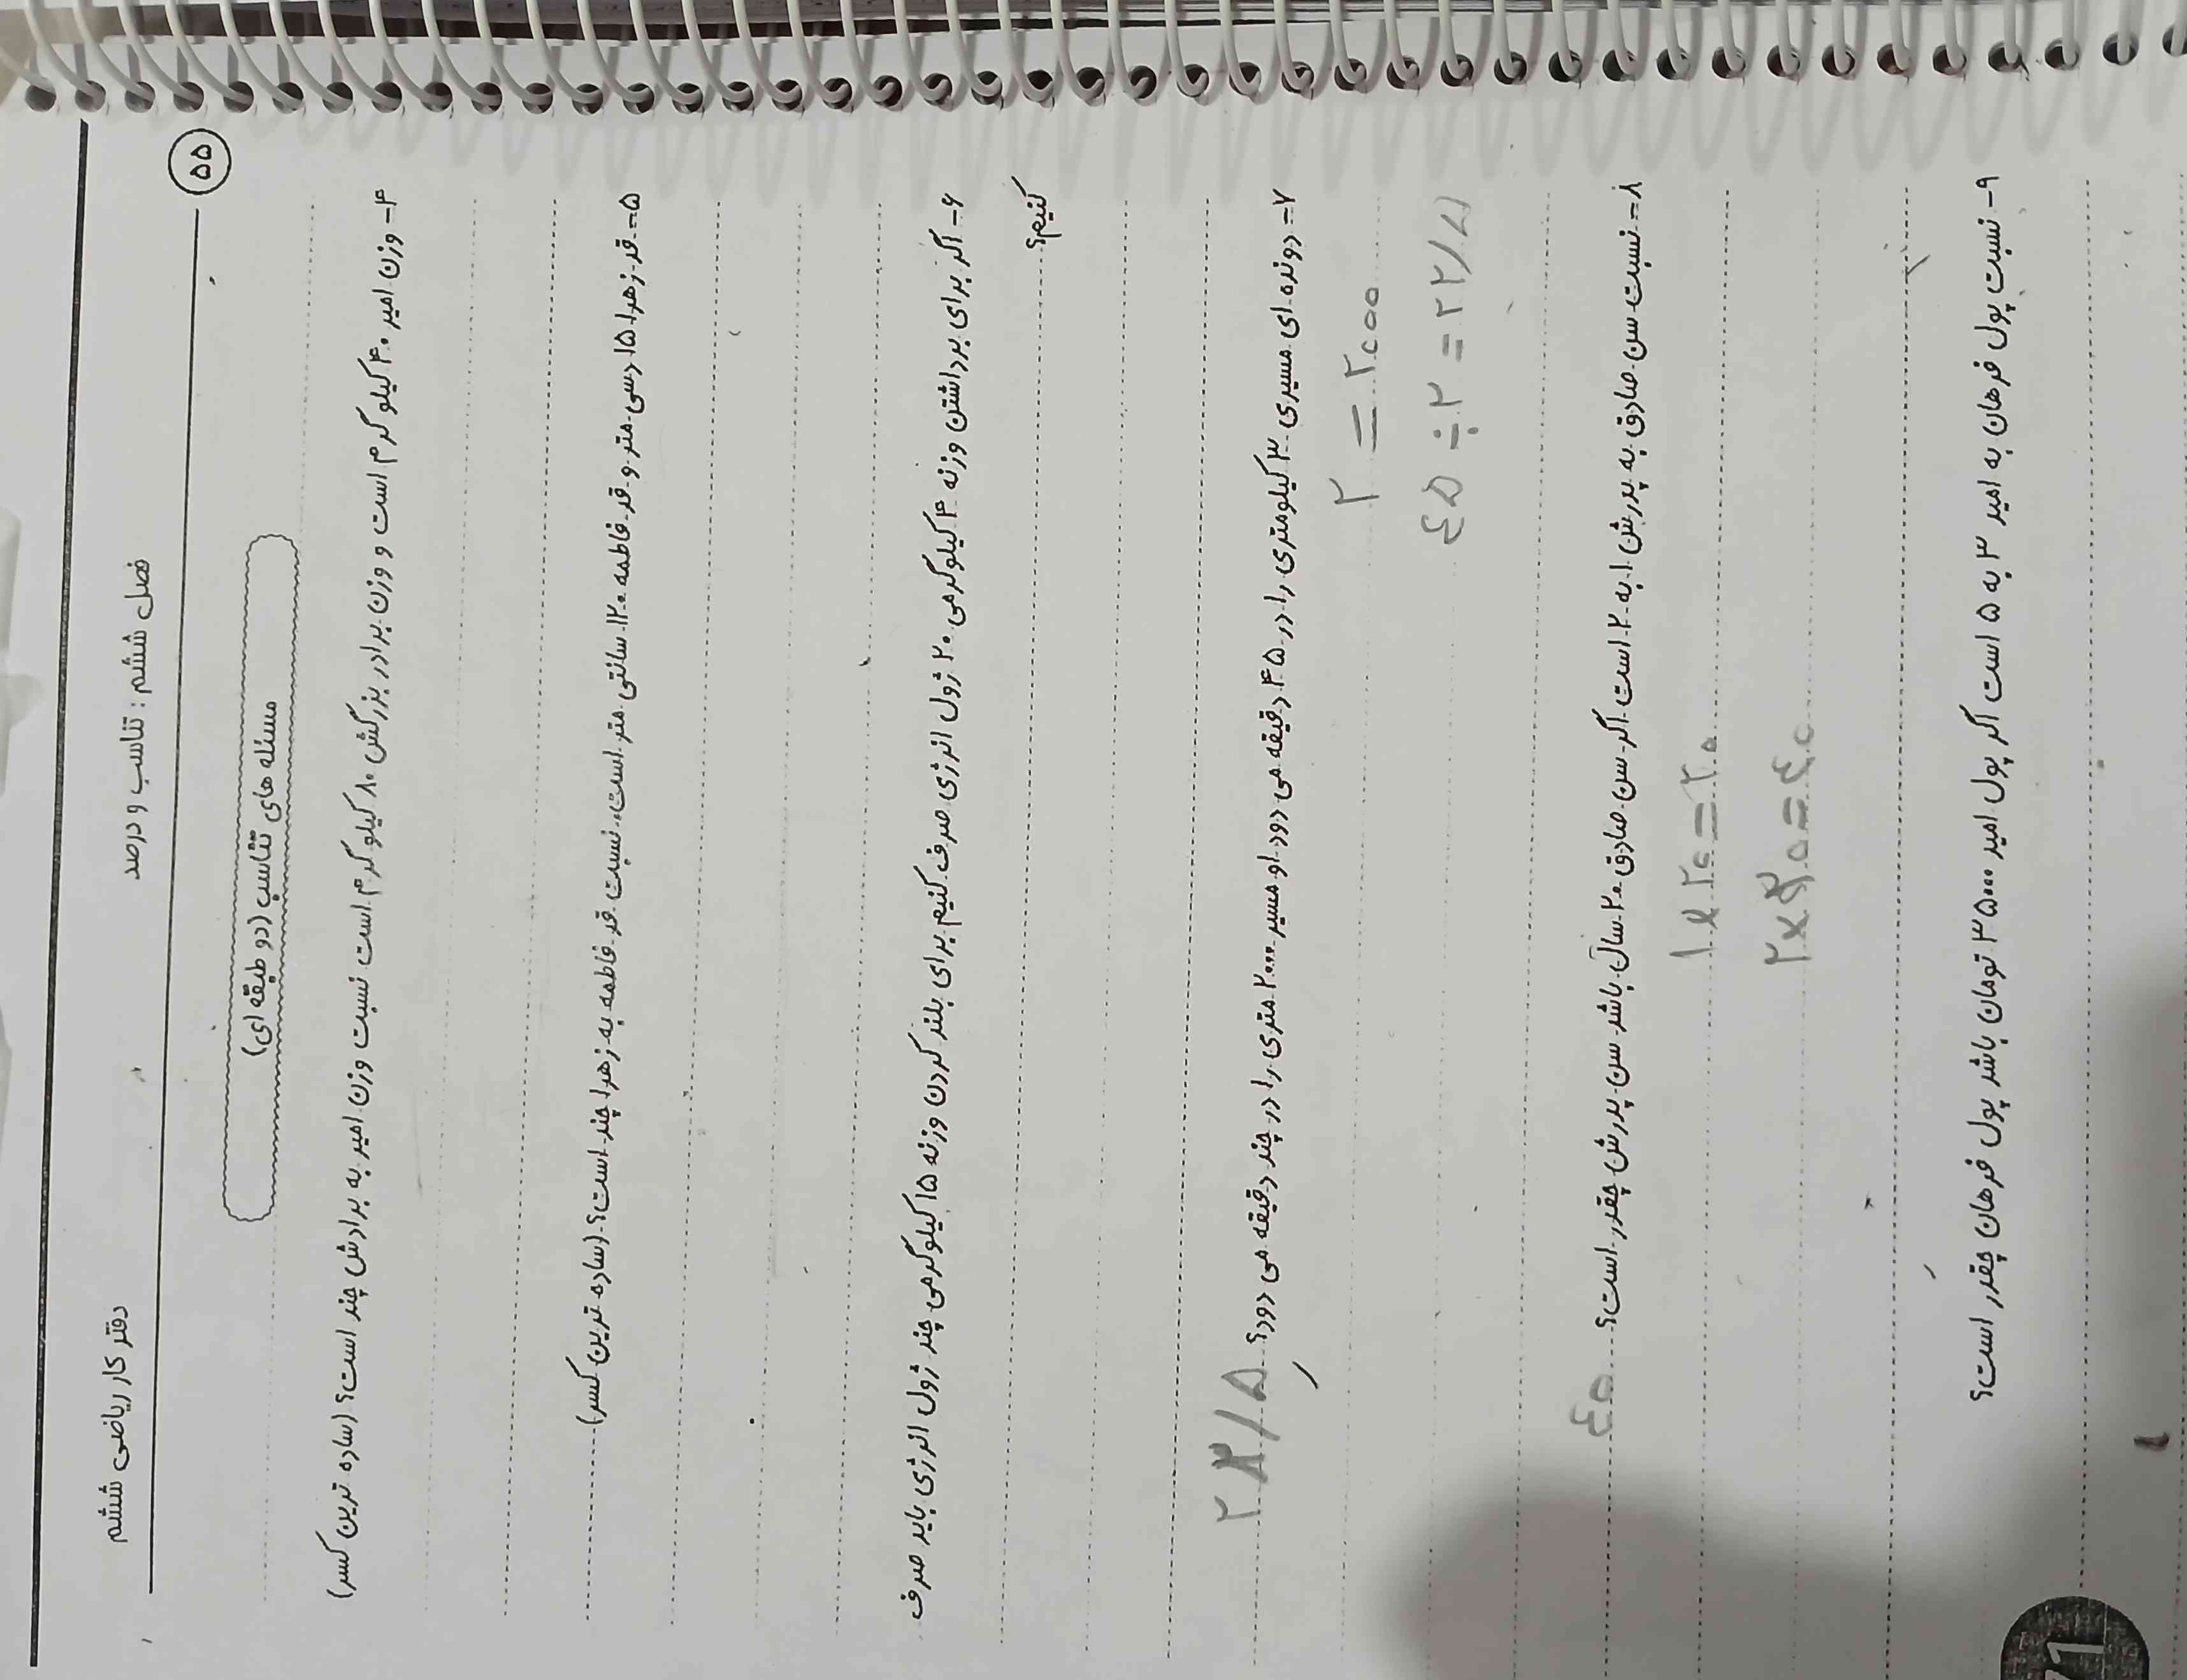 دفتر کار ریاضی ششم
فصل ششم : تناسب و درصد
۵۵
مسئله های تناسب (دو طبقه ای)
۴- وزن امیر ۴۰ کیلو گرم است و وزن برادر بزرگش ۸۰ کیلو گرم است نسبت وزن امیر به برادرش چند است؟ (ساده ترین کسر)
۵- قد زهرا ۱۵ دسی متر و قد فاطمه ۱۲۰ سانتی متر است، نسبت قد فاطمه به زهرا چند است؟ (ساده ترین کسر)
۶- اگر برای برداشتن وزنه ۴ کیلوگرمی ۲۰ ژول انرژی صرف کنیم برای بلند کردن وزنه ۱۵ کیلوگرمی چند ژول انرژی باید صرف
کنیم؟
۷- دونده ای مسیری ۳ کیلومتری را در ۴۵ دقیقه می دود او مسیر ۲۰۰۰ متری را در چند دقیقه می دود؟
۲ = ۲۰۰۰
۴۵ ÷ ۲ = ۲۲/۵
۸- نسبت سن صادق به پدرش ۱ به ۲ است اگر سن صادق ۲۰ سال باشد سن پدرش چقدر است؟ ۴۰
۱×۲۰=۲۰
۹- نسبت پول فرهان به امید ۳ به ۵ است اگر پول امید ۳۵۰۰۰ تومان باشد پول فرهان چقدر است؟